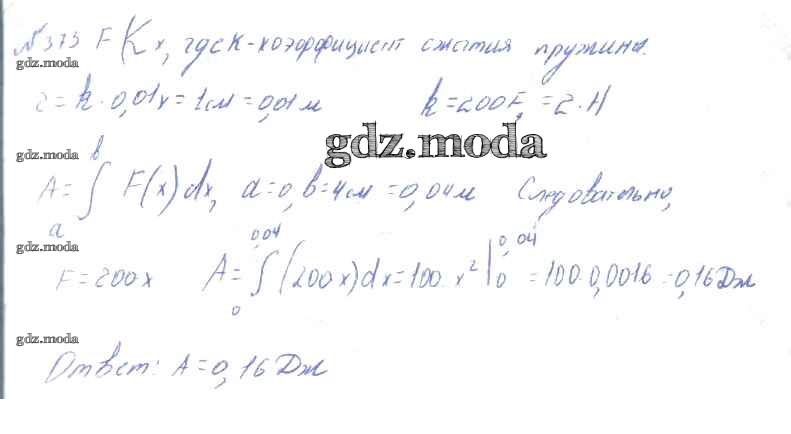 № 373 F(Kx, где K-коэффициент сжатия пружины.
gdz.moda
2=k·0,01 x=1см=0,01м k=200 F=2·H
gdz.moda
gdz.moda
A=∫ₐᵇ F(x)dx, a=0, b=4см=0,04м Следовательно,
gdz.moda
F=200x A=∫₀^0,04 (200x)dx=100·x²|₀^0,04 =100·0,0016=0,16Дж
gdz.moda
Ответ: A=0,16Дж